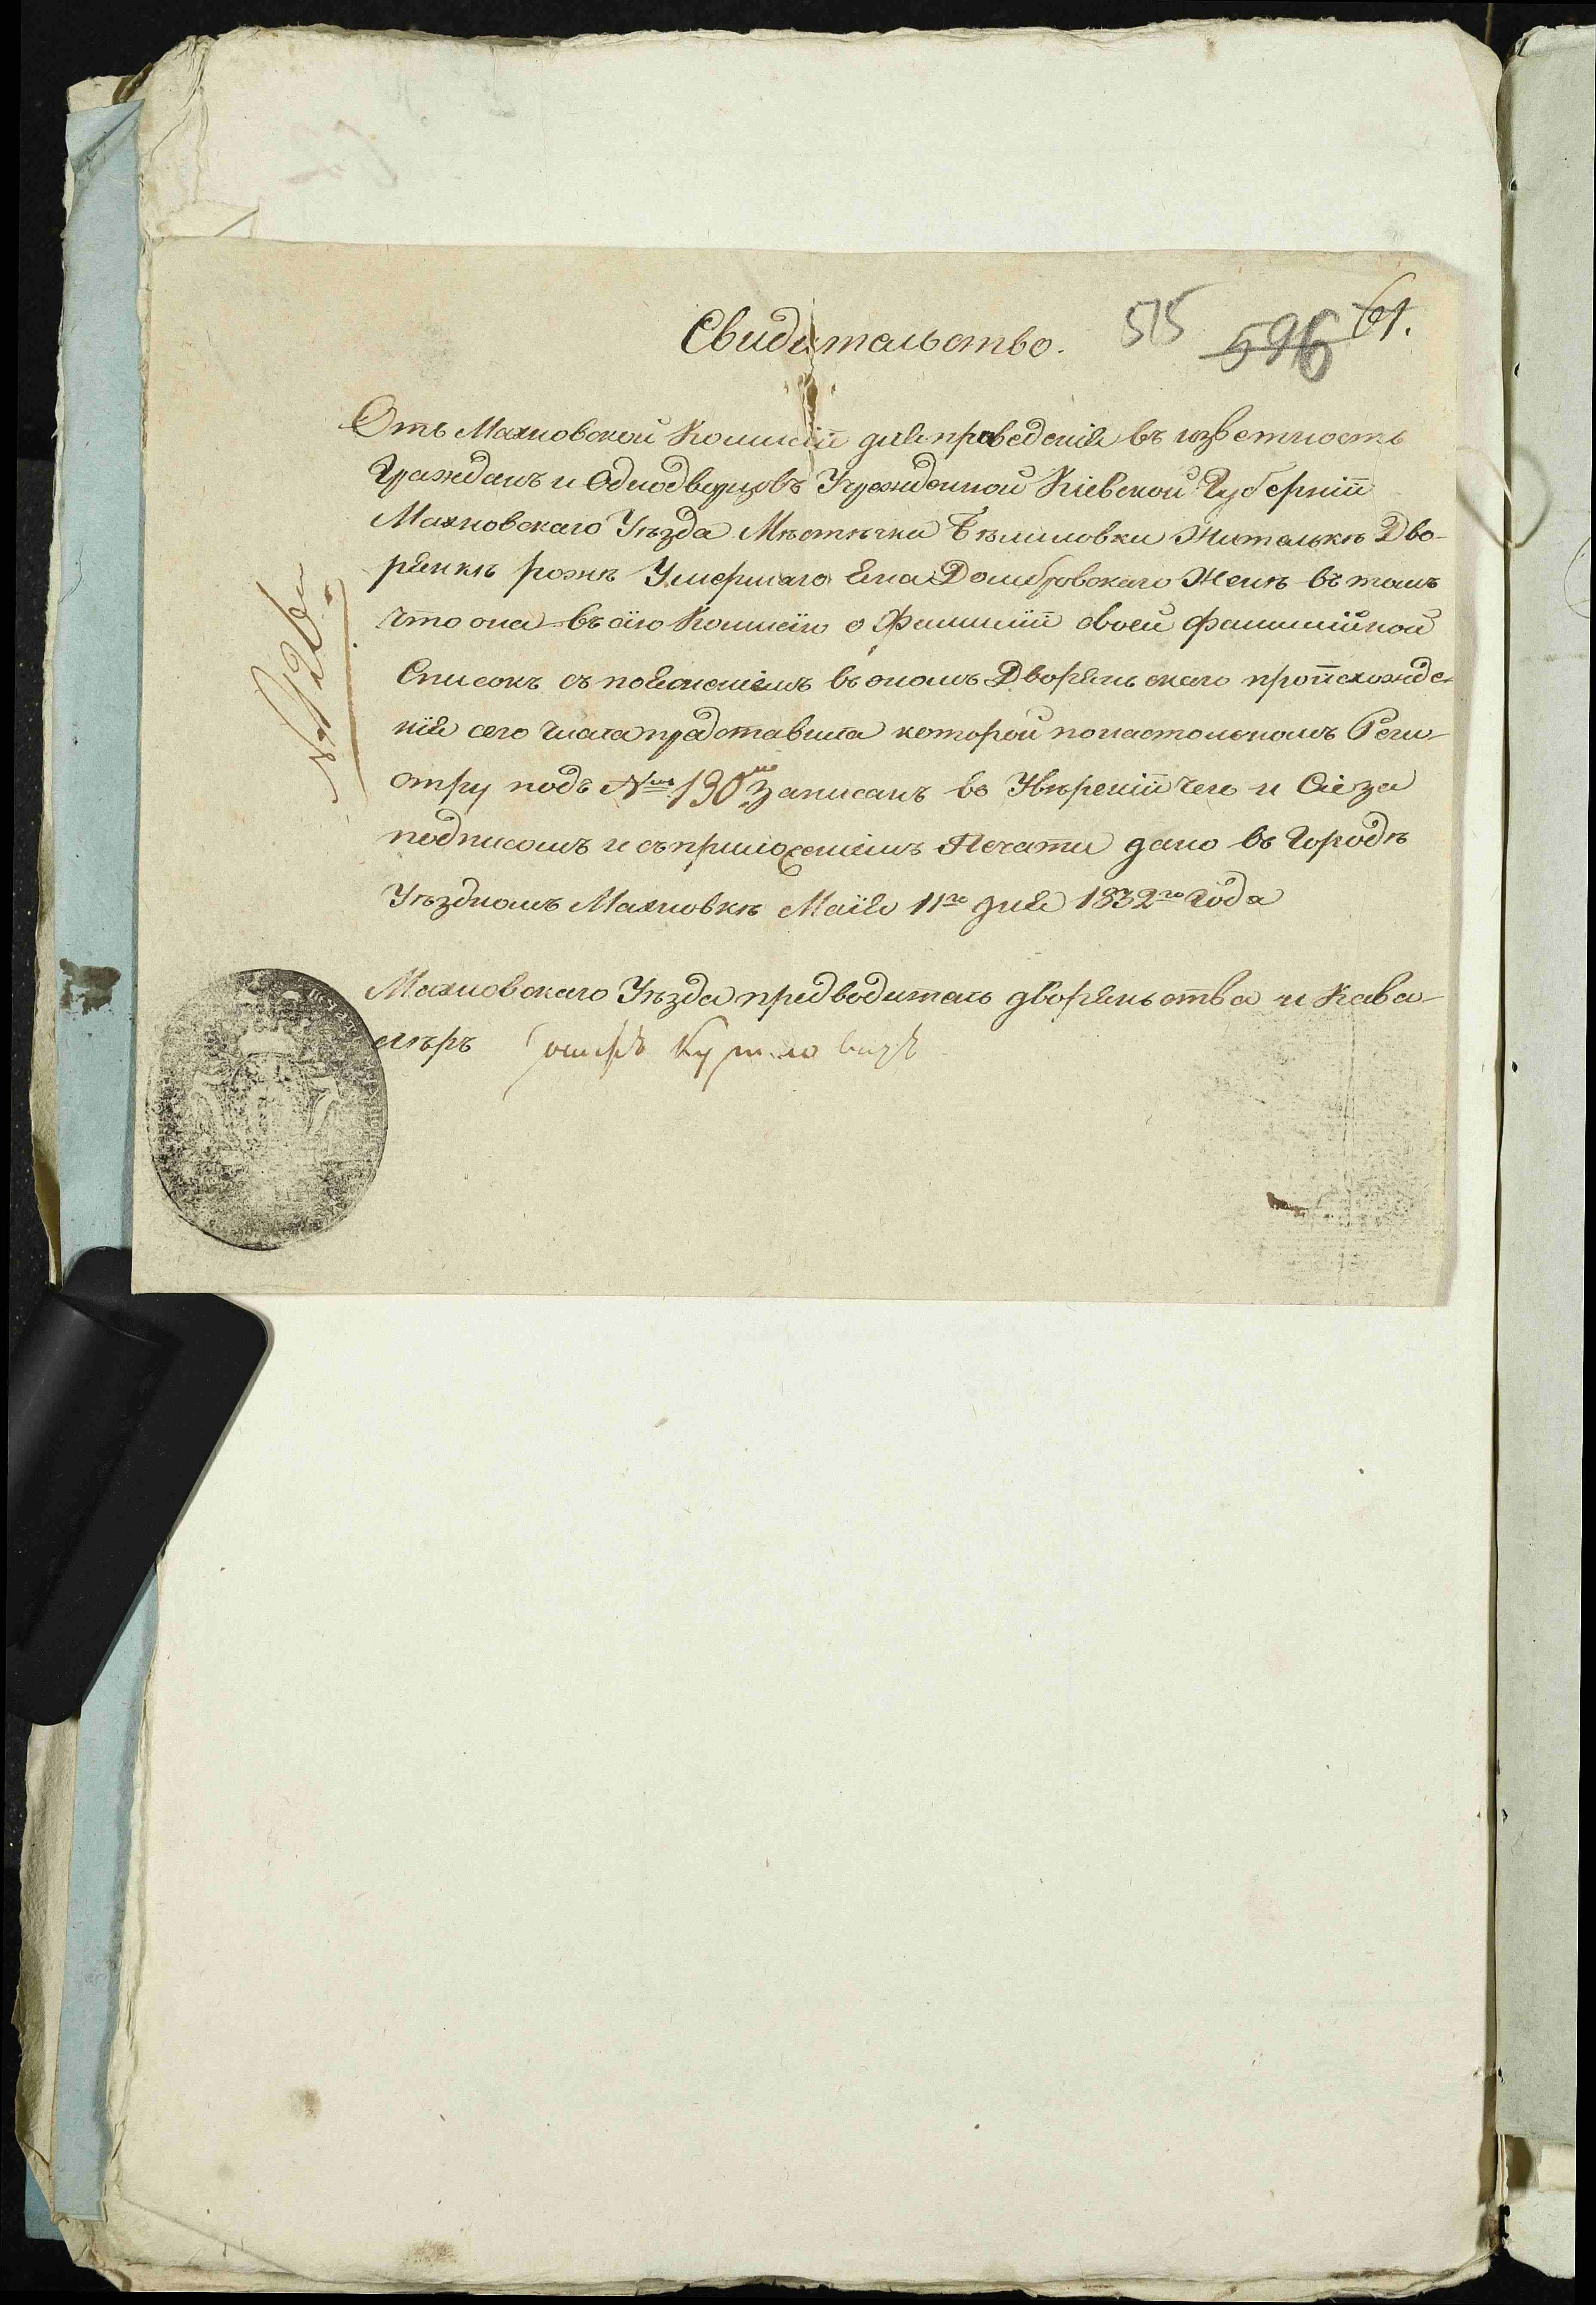 Свидѣтельство. 515 596 61.
Отъ Махновской Комисіи для проведенія въ извѣстность
Гражданъ и Однодворцовъ Учрежденной Кіевской Губерніи
Махновскаго Уѣзда Мѣстѣчка Бѣлиловки Жителькѣ Дво-
рянкѣ Умершаго Домбровскаго Женѣ въ томъ
что она въ сію Комисію о Фамиліи своей фамилійной
Списокъ съ поясненіемъ въ ономъ Дворянскаго происхожде-
нія сего числа представила которой по настольномъ Реги-
стру подъ № 190 Записанъ во Увѣреніи чего и Сіе за
подписомъ и съ приложеніемъ Печати дано въ Городѣ
Уѣздномъ Махновкѣ Маія 11го дня 1832го Года
Махновскаго Уѣзда предводитель дворянства и Кава-
лѣръ